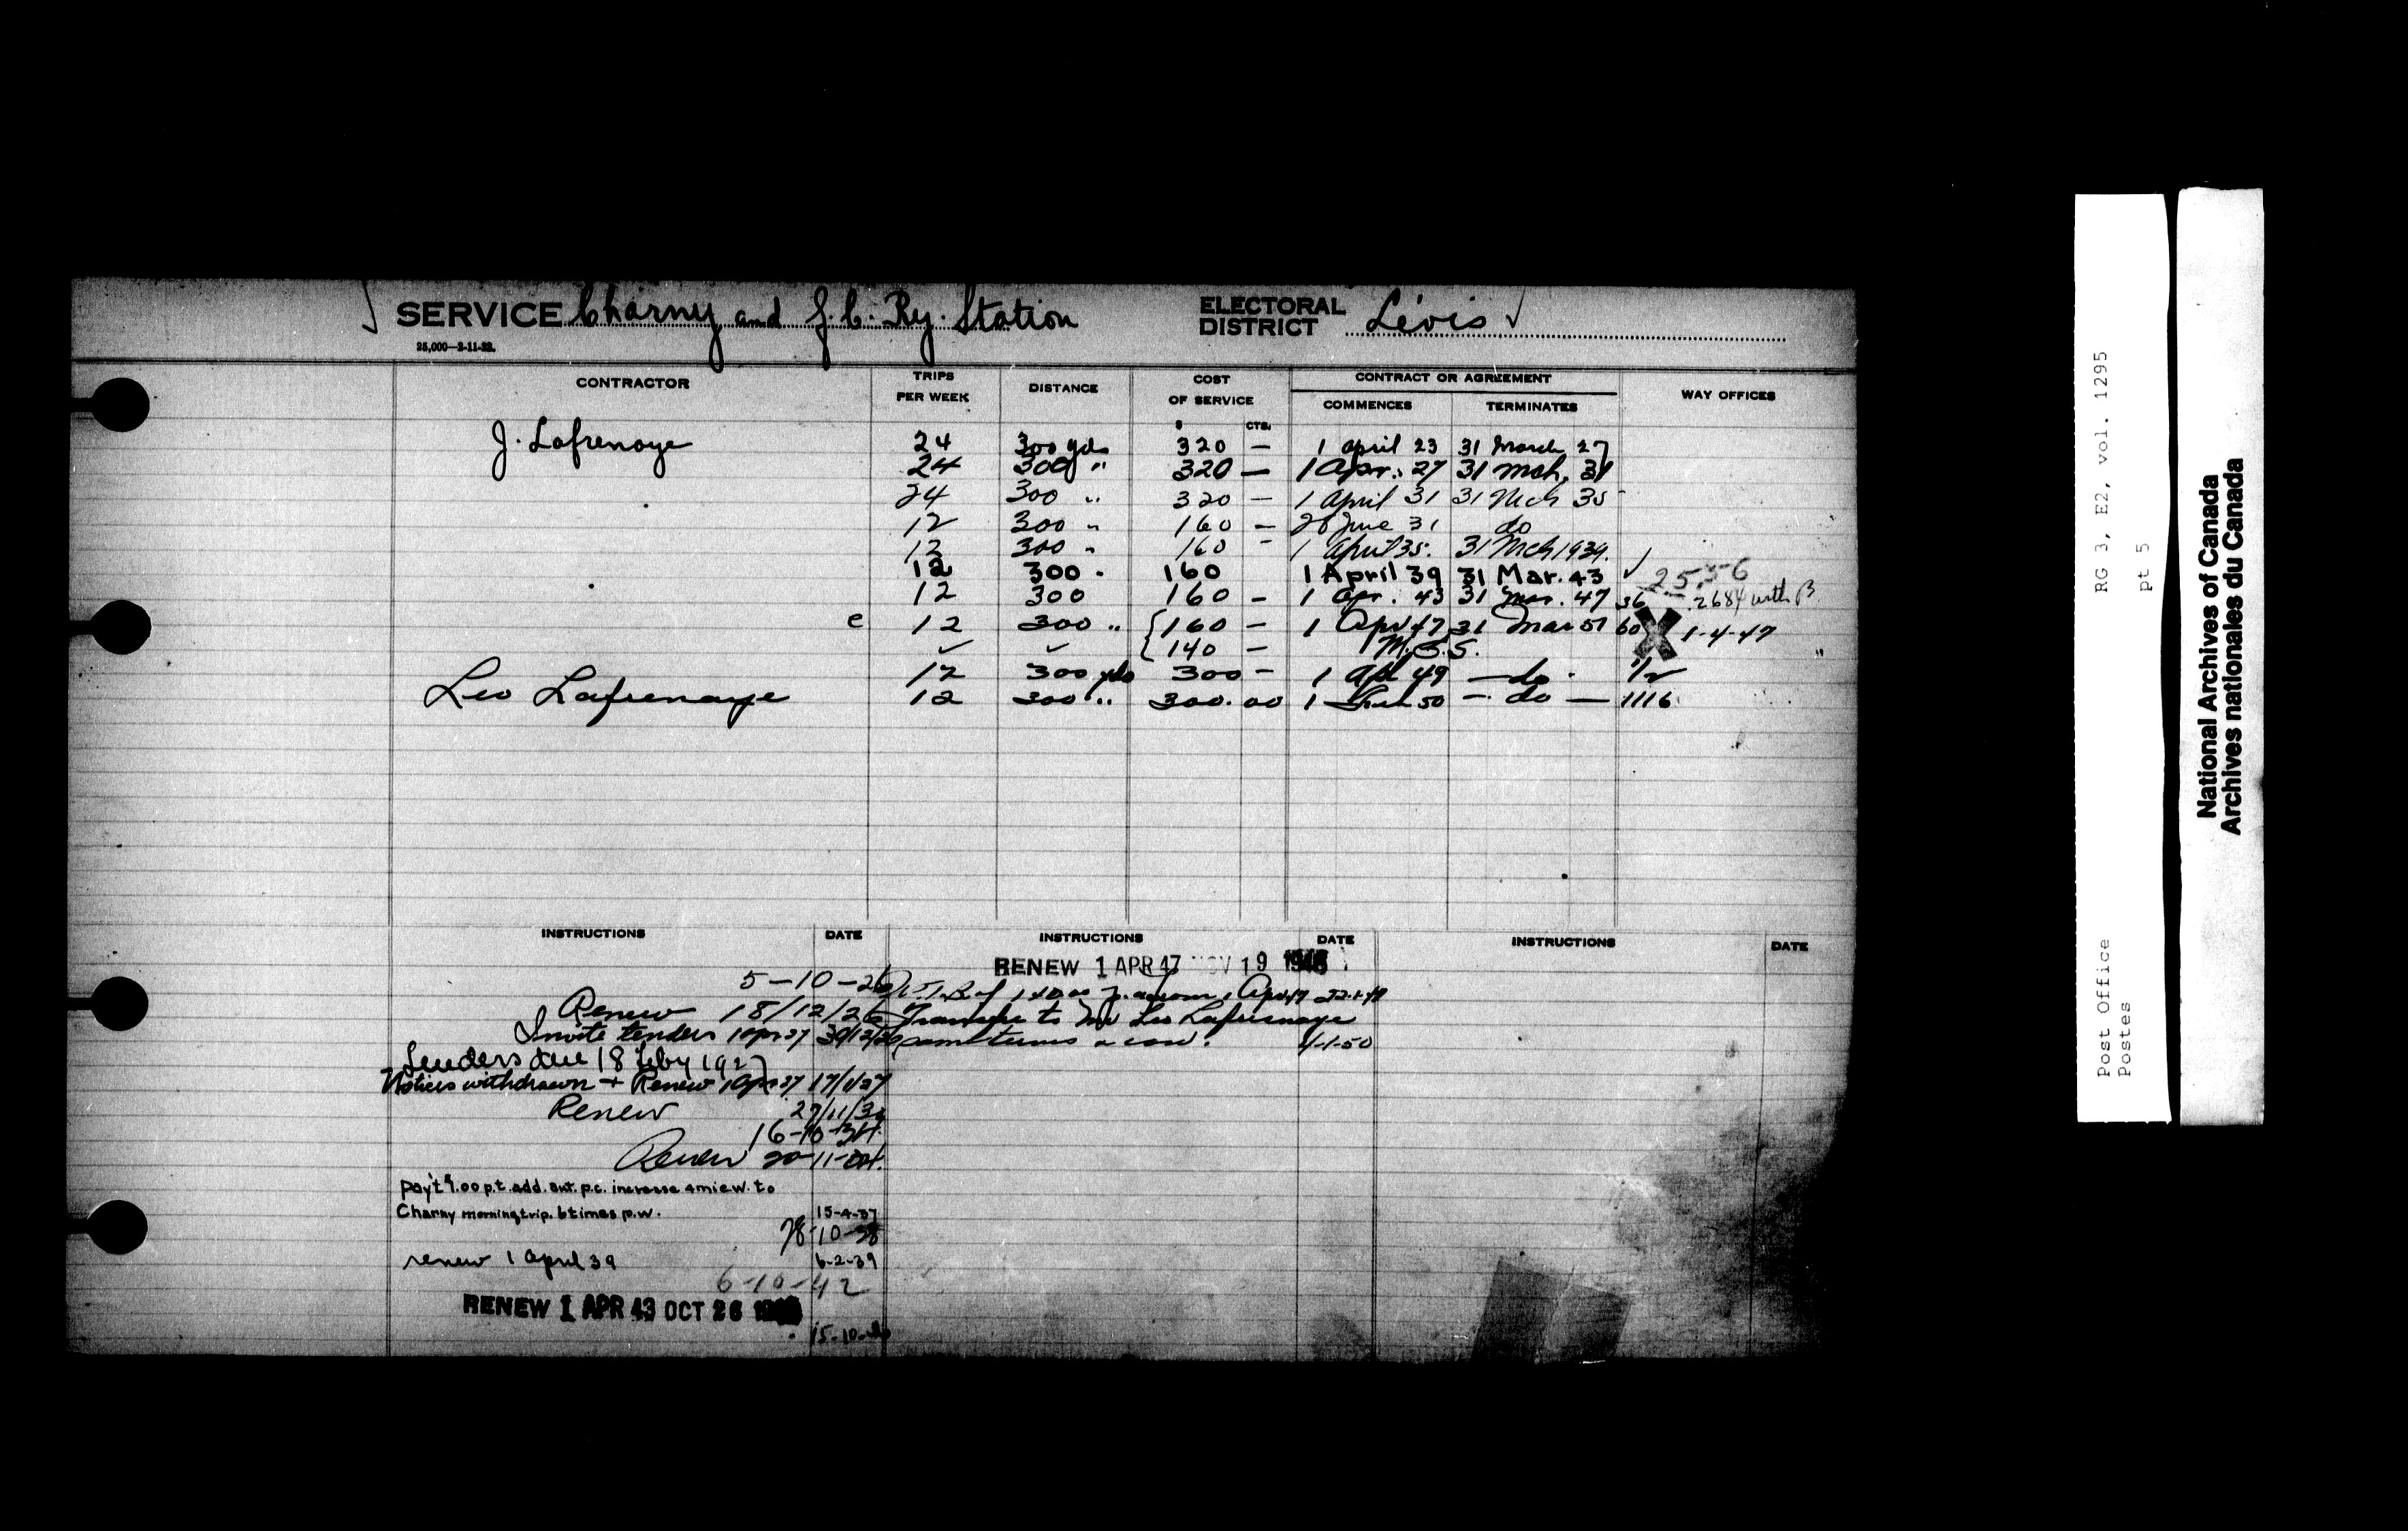 SERVICE Charny and J. C. Ry. Station ELECTORAL DISTRICT Lévis
25,000—2-11-22.
CONTRACTOR TRIPS PER WEEK DISTANCE COST OF SERVICE CONTRACT OR AGREEMENT WAY OFFICES
COMMENCES TERMINATES
$ CTS.
J. Lafrenaye 24 300 yds 320 — 1 April 23 31 March 27
24 300 " 320 — 1 Apr. 27 31 Mch. 31
24 300 " 320 — 1 April 31 31 Mch 35
12 300 " 160 — 28 June 31 do
12 300 " 160 — 1 April 35. 31 Mch 1939.
12 300 " 160 1 April 39 31 Mar. 43 25-5-6
12 300 160 — 1 Apr. 43 31 Mar. 47 36 2684 with B
e 12 300 " 160 — 1 Apr 47 31 Mar 51 60 X 1-4-47
140 —
12 300 yds 300 — 1 Apl 49 — do - 1/2
Leo Lafrenaye 12 300 " 300.00 1 50 — do — 1116
INSTRUCTIONS DATE INSTRUCTIONS DATE INSTRUCTIONS DATE
5-10-26
Renew 18/12/26
Invite tenders 1 Apr 27 30/12/26
Tenders due 18 Feby 1927
Notices withdrawn + Renew 1 Apr 27 17/1/27
Renew 27/11/30
16-10-34.
Renew 20-11-34.
pay't 9.00 p.t. add. p.c. increase to
Charny morning trip. 6 times p.w. 15-4-37
28-10-38
renew 1 April 39 6-2-39
6-10-42
RENEW 1 APR 43 OCT 26
15-10-
RENEW 1 APR 47 NOV 19
Transfer to Mr Leo Lafrenaye
same terms 4-1-50
RG 3, E2, vol. 1295
pt 5
Post Office
Postes
National Archives of Canada
Archives nationales du Canada